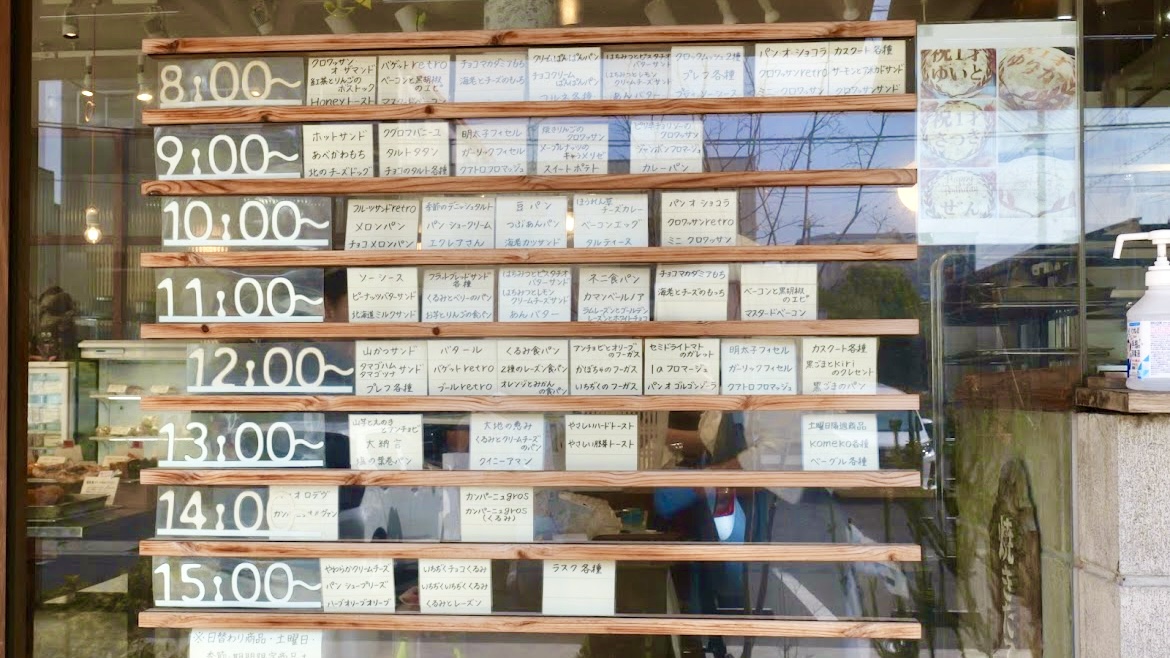 8:00〜
クロワッサン
オ ザマンド
紅茶とりんごの
ポストック
Honeyトースト
バゲットretro
ベーコンと黒胡椒
のエピ
チョコマカダミア65
海老とチーズのもっち
チョコクリーム
はちみつとピスタチオ
バターサンド
はちみつとレモン
クリームチーズサンド
あんバター
プレフ各種
パン オ ショコラ
クロワッサンretro
ミニ クロワッサン
カスクート 各種
サーモンとアボカドサンド
9:00〜
ホットサンド
あべかわもち
北のチーズドッグ
クグロフバニーユ
タルトタタン
チョコのタルト各種
明太子フィセル
ガーリックフィセル
クアトロフロマッジュ
焼きりんごの
クロワッサン
メープルナッツの
キャラメリゼ
スイートポテト
ジャンボンフロマージュ
カレーパン
10:00〜
フルーツサンドretro
メロンパン
チョコメロンパン
季節のデニッシュタルト
パン シュークリーム
エクレアさん
豆パン
つぶあんパン
海老カツサンド
ほうれん草
チーズカレー
ベーコンエッグ
タルティーヌ
パン オ ショコラ
クロワッサンretro
ミニ クロワッサン
11:00〜
ソーシース
ピーナッツバターサンド
北海道ミルクサンド
フラットブレッドサンド
各種
くるみとベリーのパン
お芋とりんごの食パン
はちみつとピスタチオ
バターサンド
はちみつとレモン
クリームチーズサンド
あんバター
ネニ食パン
カマンベールノア
ラムレーズンとゴールデン
レーズンとホワイトチョコ
チョコマカダミア65
海老とチーズのもっち
ベーコンと黒胡椒
のエピ
マスタードベーコン
12:00〜
山かつサンド
タマゴハム サンド
タマゴツナ
プレフ各種
バタール
バゲットretro
ブールretro
くるみ食パン
2種のレーズン食パン
オレンジとみかん
の食パン
アンチョビとオリーブ
のフーガス
かぼちゃのフーガス
いちぢくのフーガス
セミドライトマト
のガレット
1a フロマージュ
パン オ ゴルゴンゾーラ
明太子フィセル
ガーリックフィセル
クアトロフロマッジュ
カスクート各種
黒ごまとkiri
のクレセント
黒ごまのパン
13:00〜
大納言
塩の葉巻パン
大地の恵み
くるみとクリームチーズ
のパン
クイニーアマン
やさしいハードトースト
やさしい胚芽トースト
土曜日限定商品
komeko各種
ベーグル各種
14:0
カンパーニュgros
カンパーニュgros
(くるみ)
15:00〜
やわらかクリームチーズ
パン シューブリーズ
ハーブオリーブオリーブ
いちぢくチョコくるみ
いちぢくいちぢくくるみ
くるみとレーズン
ラスク各種
※日替わり商品・土曜日
祝1才
ゆいと
祝1才
さつき